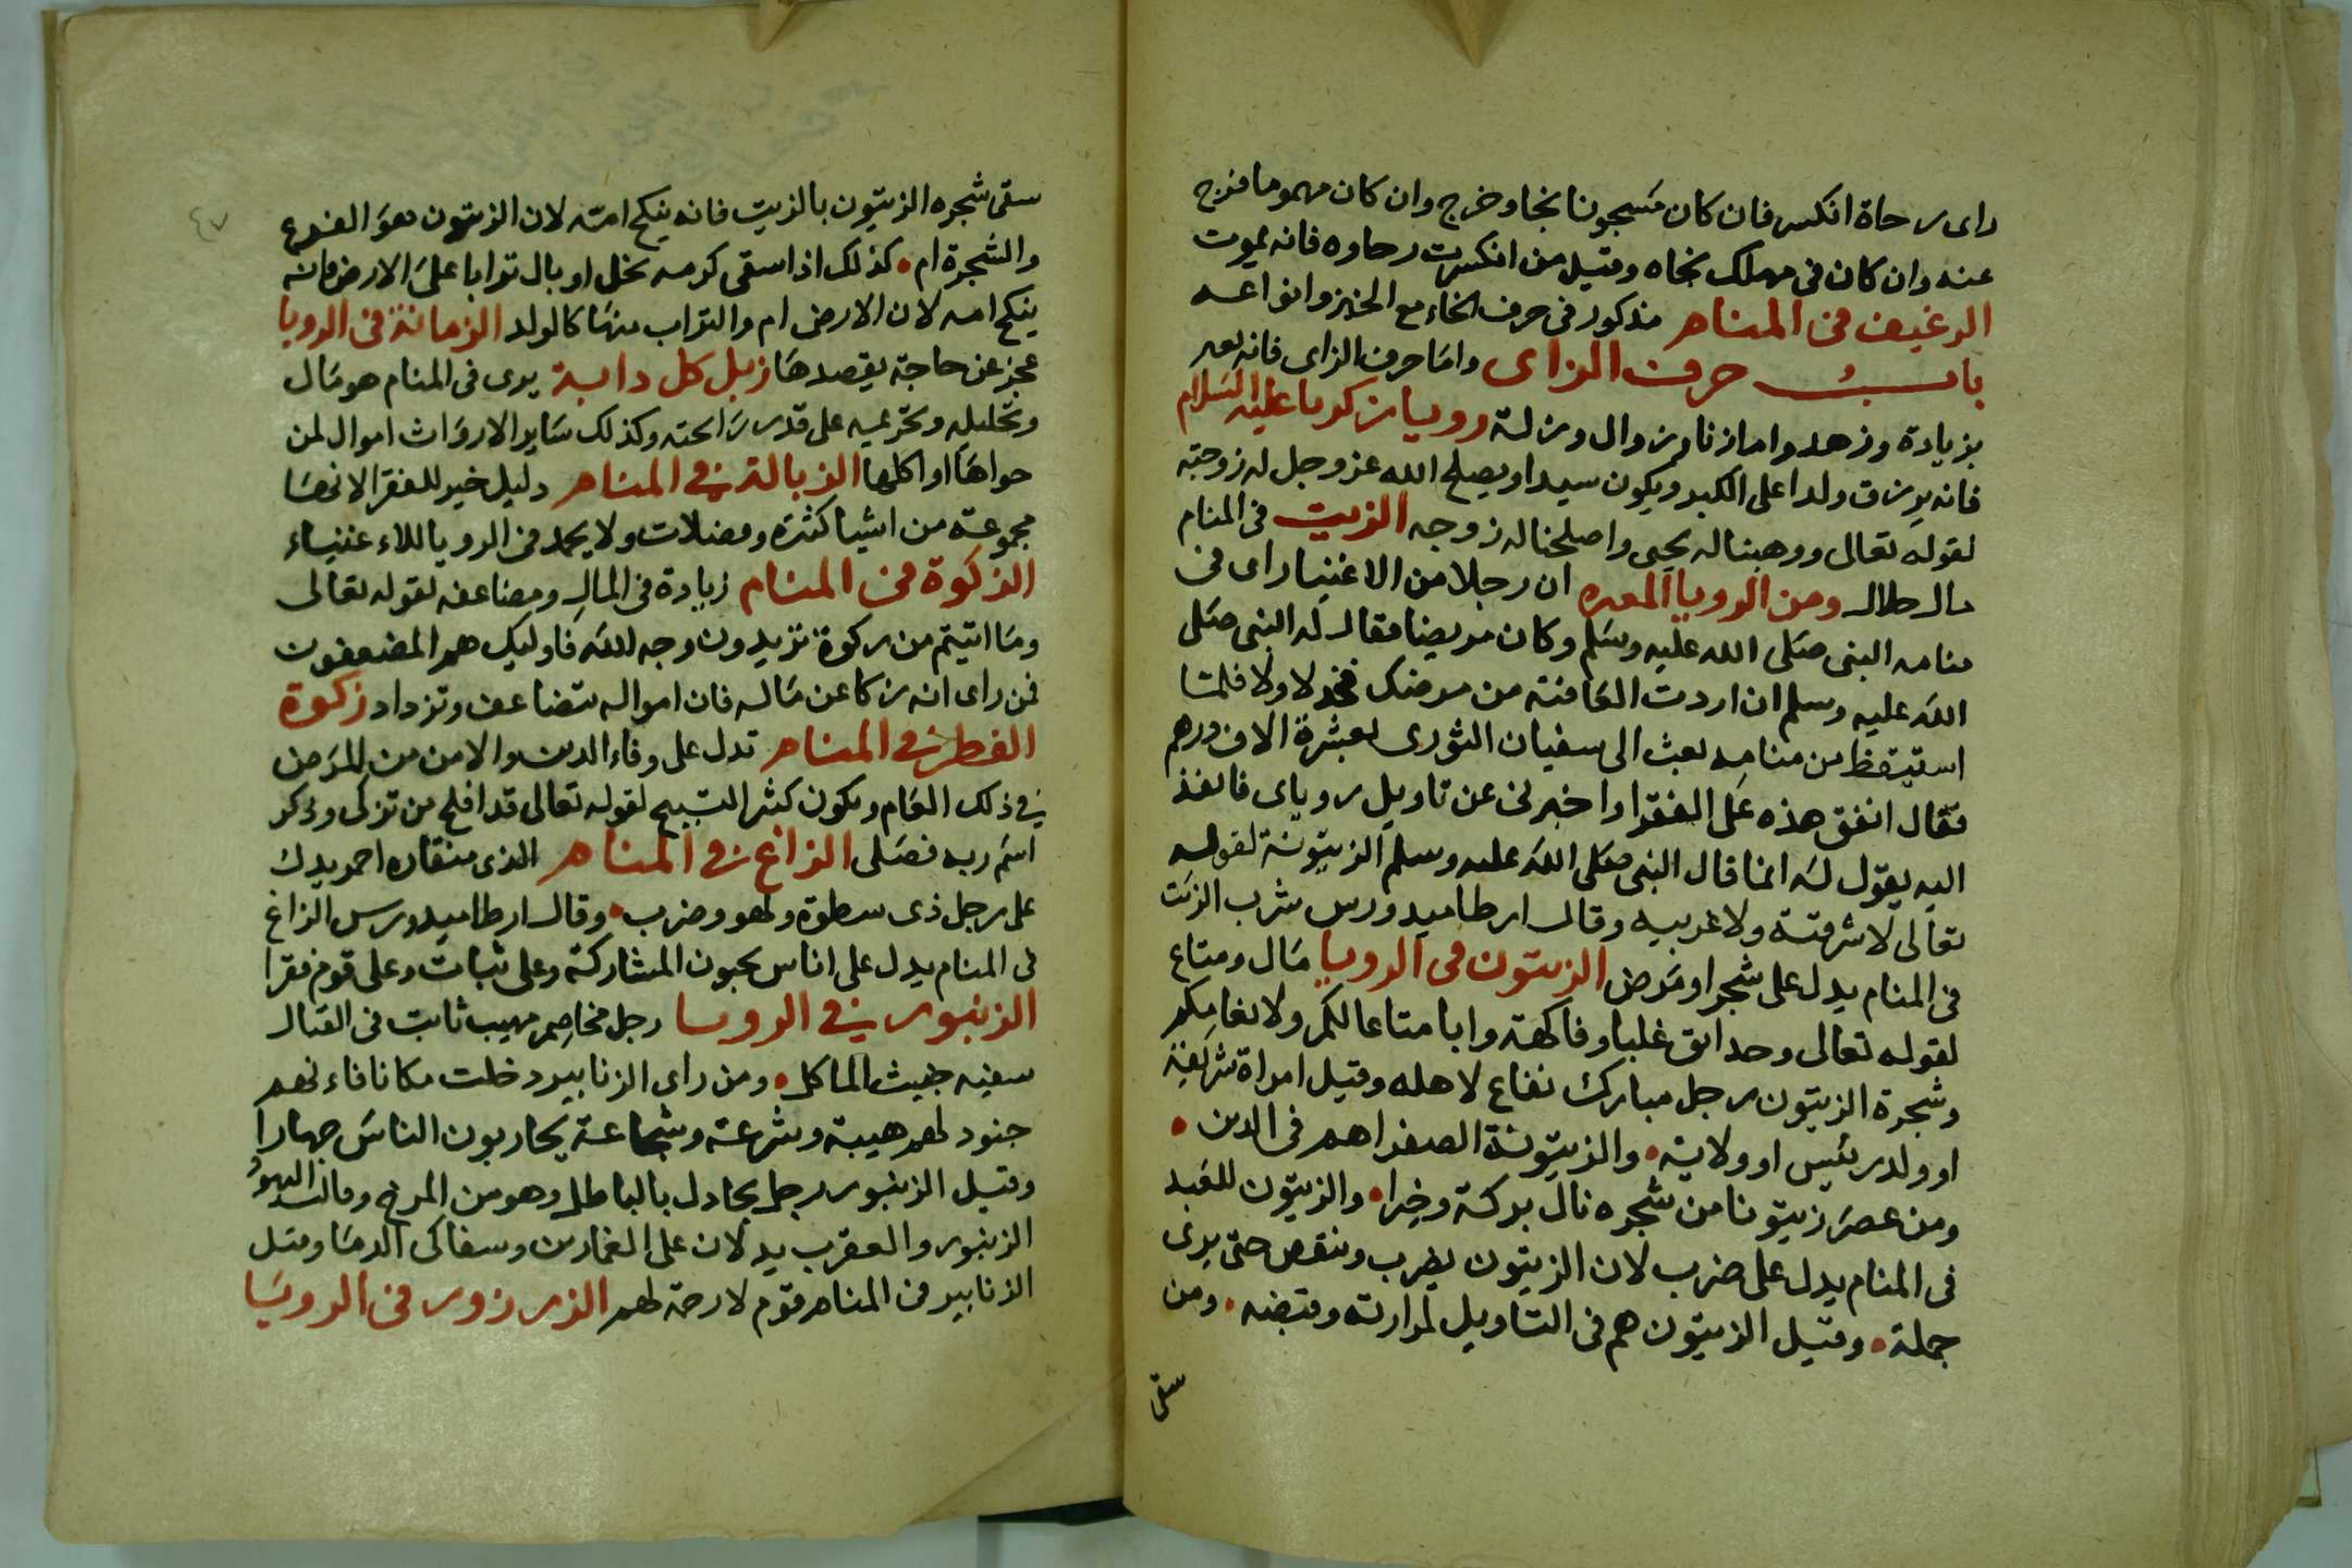 راى رحاة انكسر فان كان مسجونا نجا وخرج وان كان مهموما فرج
عنه وان كان فى مهلك نجاه وقيل من انكسرت رحاوه فانه يموت
الرغيف فى المنام مذكور فى حرف الخاء مع الخبز وانواعه
باب حرف الزاى واما حرف الزاى فانه يعبر
بزيادة وزهد واما زنا وزوال وزلة رويا زكريا عليه السلام
فانه يرزق ولدا على الكبر ويكون سيدا ويصلح الله عز وجل له زوجته
لقوله تعالى ووهبنا له يحيى واصلحنا له زوجه الزيت فى المنام
مال حلال ومن الرويا المعبره ان رجلا من الاغنيا راى فى
منامه النبى صلى الله عليه وسلم وكان مريضا فقال له النبى صلى
الله عليه وسلم ان اردت العافية من مرضك فخذ لا ولا فلما
استيقظ من منامه بعث الى سفيان الثورى بعشرة الاف درهم
فقال انفق هذه على الفقرا واخبرنى عن تاويل روياى فانفذ
اليه يقول له انما قال النبى صلى الله عليه وسلم الزيتونة لقوله
تعالى لا شرقية ولا غربيه وقال ارطاميدورس شرب الزيت
فى المنام يدل على شجر او مرض الزيتون فى الرويا مال ومتاع
لقوله تعالى وحدايق غلبا وفاكهة وابا متاعا لكم ولانعامكم
وشجرة الزيتون رجل مبارك نفاع لاهله وقيل امراة شريفة
او ولد رئيس او ولاية والزيتونة الصفرا هم فى الدين
ومن عصر زيتونا من شجره نال بركة وخيرا والزيتون للعبد
فى المنام يدل على ضرب لان الزيتون يضرب وينقص حتى يرى
جملة وقيل الزيتون هم فى التاويل لمرارته وقبضه ومن
سقى
٤٧
سقى شجره الزيتون بالزيت فانه ينكح امته لان الزيتون هو الفرع
والشجرة ام كذلك اذا سقى كرمه بخل او بال ترابا على الارض فانه
ينكح امه لان الارض ام والتراب منها كالولد الزمانة فى الرويا
عجز عن حاجة يقصدها زبل كل دابة يرى فى المنام هو مال
وتحليله وتحريمه على قدر رائحته وكذلك ساير الارواث اموال لمن
حواها او اكلها الزبالة فى المنام دليل خير للفقرا لانها
مجموعة من اشيا كثيرة وفضلات ولا يحمد فى الرويا للاءغنياء
الزكوة فى المنام زيادة فى المال ومضاعفه لقوله تعالى
وما اتيتم من زكوة تريدون وجه الله فاوليك هم المضعفون
فمن راى انه زكا عن ماله فان امواله تتضاعف وتزداد زكوة
الفطر فى المنام تدل على وفاء الدين والامن من المرض
فى ذلك العام ويكون كثير التسبيح لقوله تعالى قد افلح من تزكى وذكر
اسم ربه فصلى الزاغ فى المنام الذى منقاره احمر يدل
على رجل ذى سطوة ولهو وضرب وقال ارطاميدورس الزاغ
فى المنام يدل على اناس يحبون المشاركة وعلى ثبات وعلى قوم فقرا
الزنبور فى الرويا رجل مخاصم مهيب ثابت فى القتال
سفيه خبيث الماكل ومن راى الزنابير دخلت مكانا فاءنهم
جنود لهم هيبة وشرعة وشجاعة يحاربون الناس جهارا
وقيل الزنبور رجل يجادل بالباطل وهو من المرخ وقالت اليهود
الزنبور والعقرب يدلان على الغمازين وسفاكى الدما وقيل
الزنابير فى المنام قوم لا رحمة لهم الزرزور فى الرويا